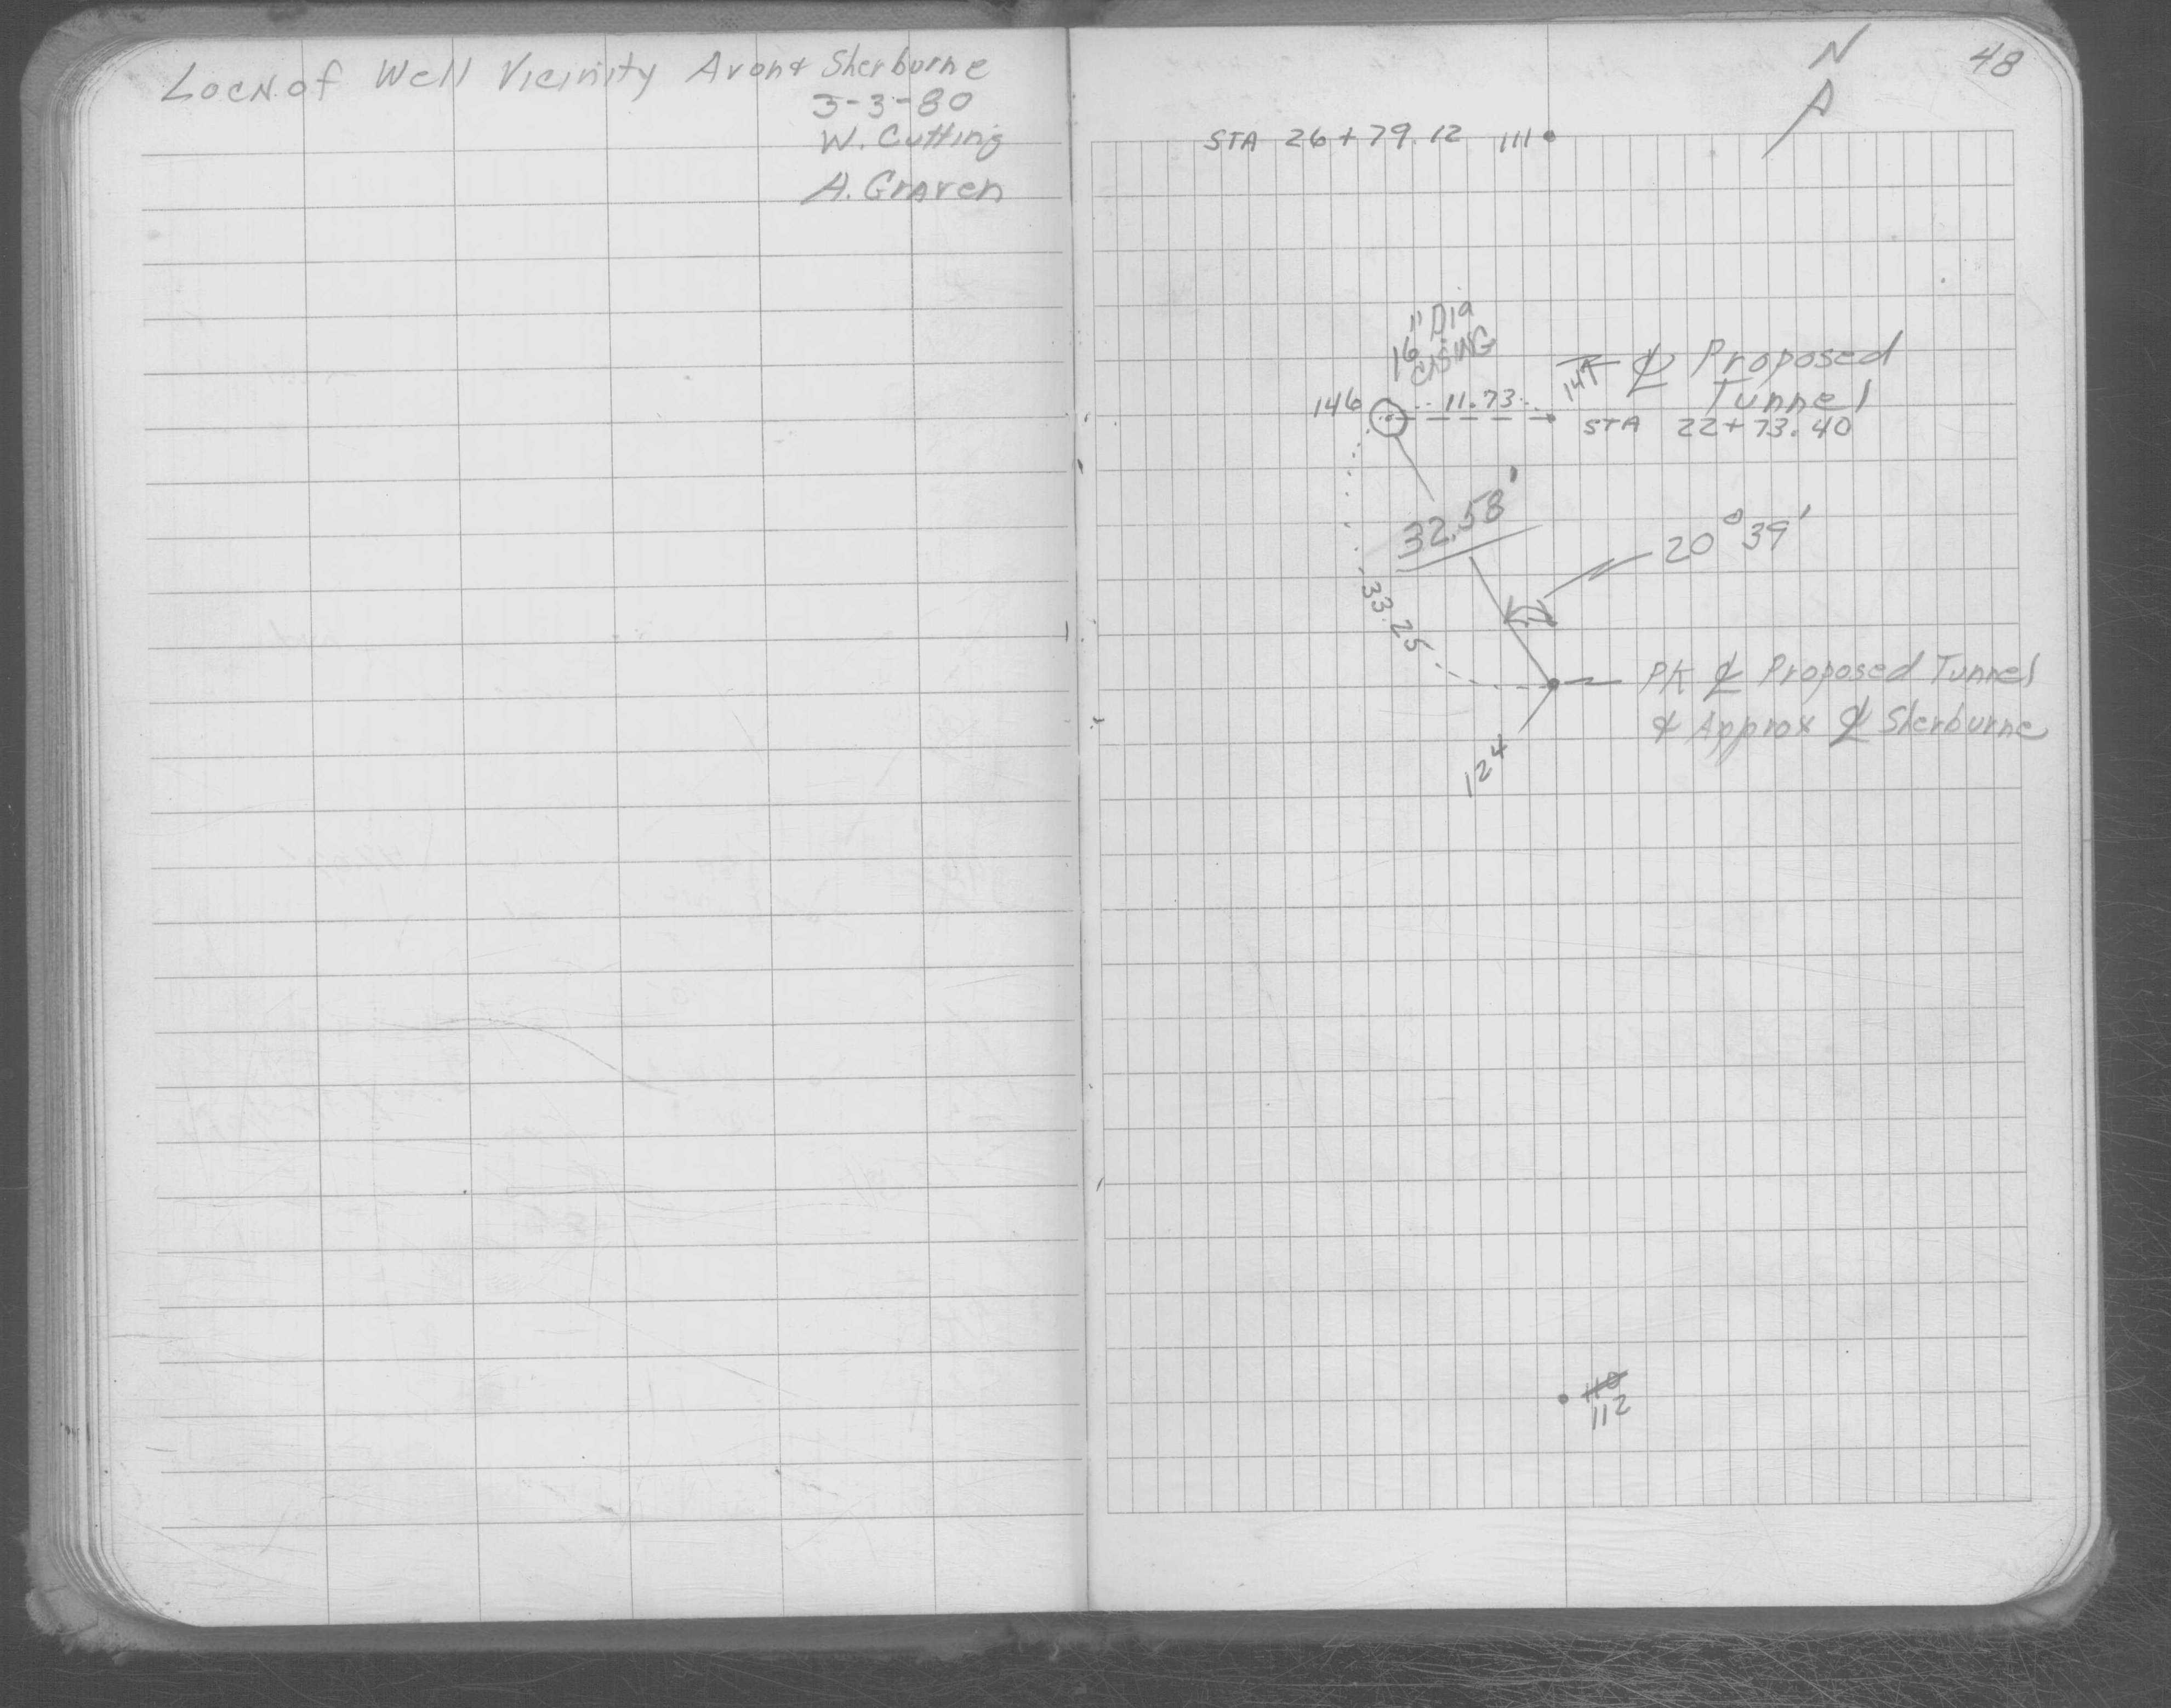 Locn. of Well Vicinity Avon & Sherburne
3-3-80
W. Cutting
A. Graven
48
N
STA 26+79.12 111
16" Dia
CASING
147
℄ Proposed
Tunnel
146
11.73
STA 22+73.40
32.58'
20°39'
33.25
PK ℄ Proposed Tunnel
& Approx ℄ Sherburne
124
110
112